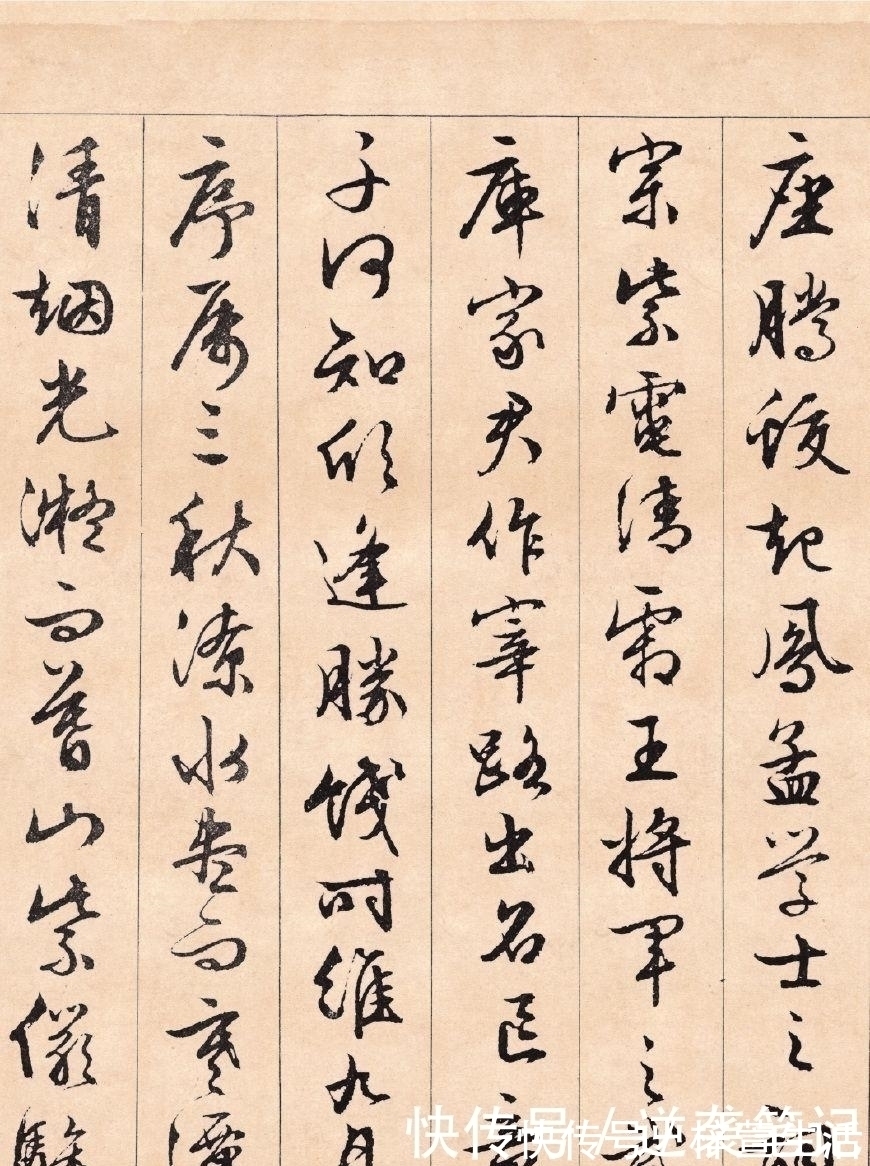 座腾蛟起凤孟学士之词
宗紫电清霜王将军之武
库家君作宰路出名区童
子何知躬逢胜饯时维九月
序属三秋潦水尽而寒潭
清烟光凝而暮山紫俨骖
快传号/逆袭笔记